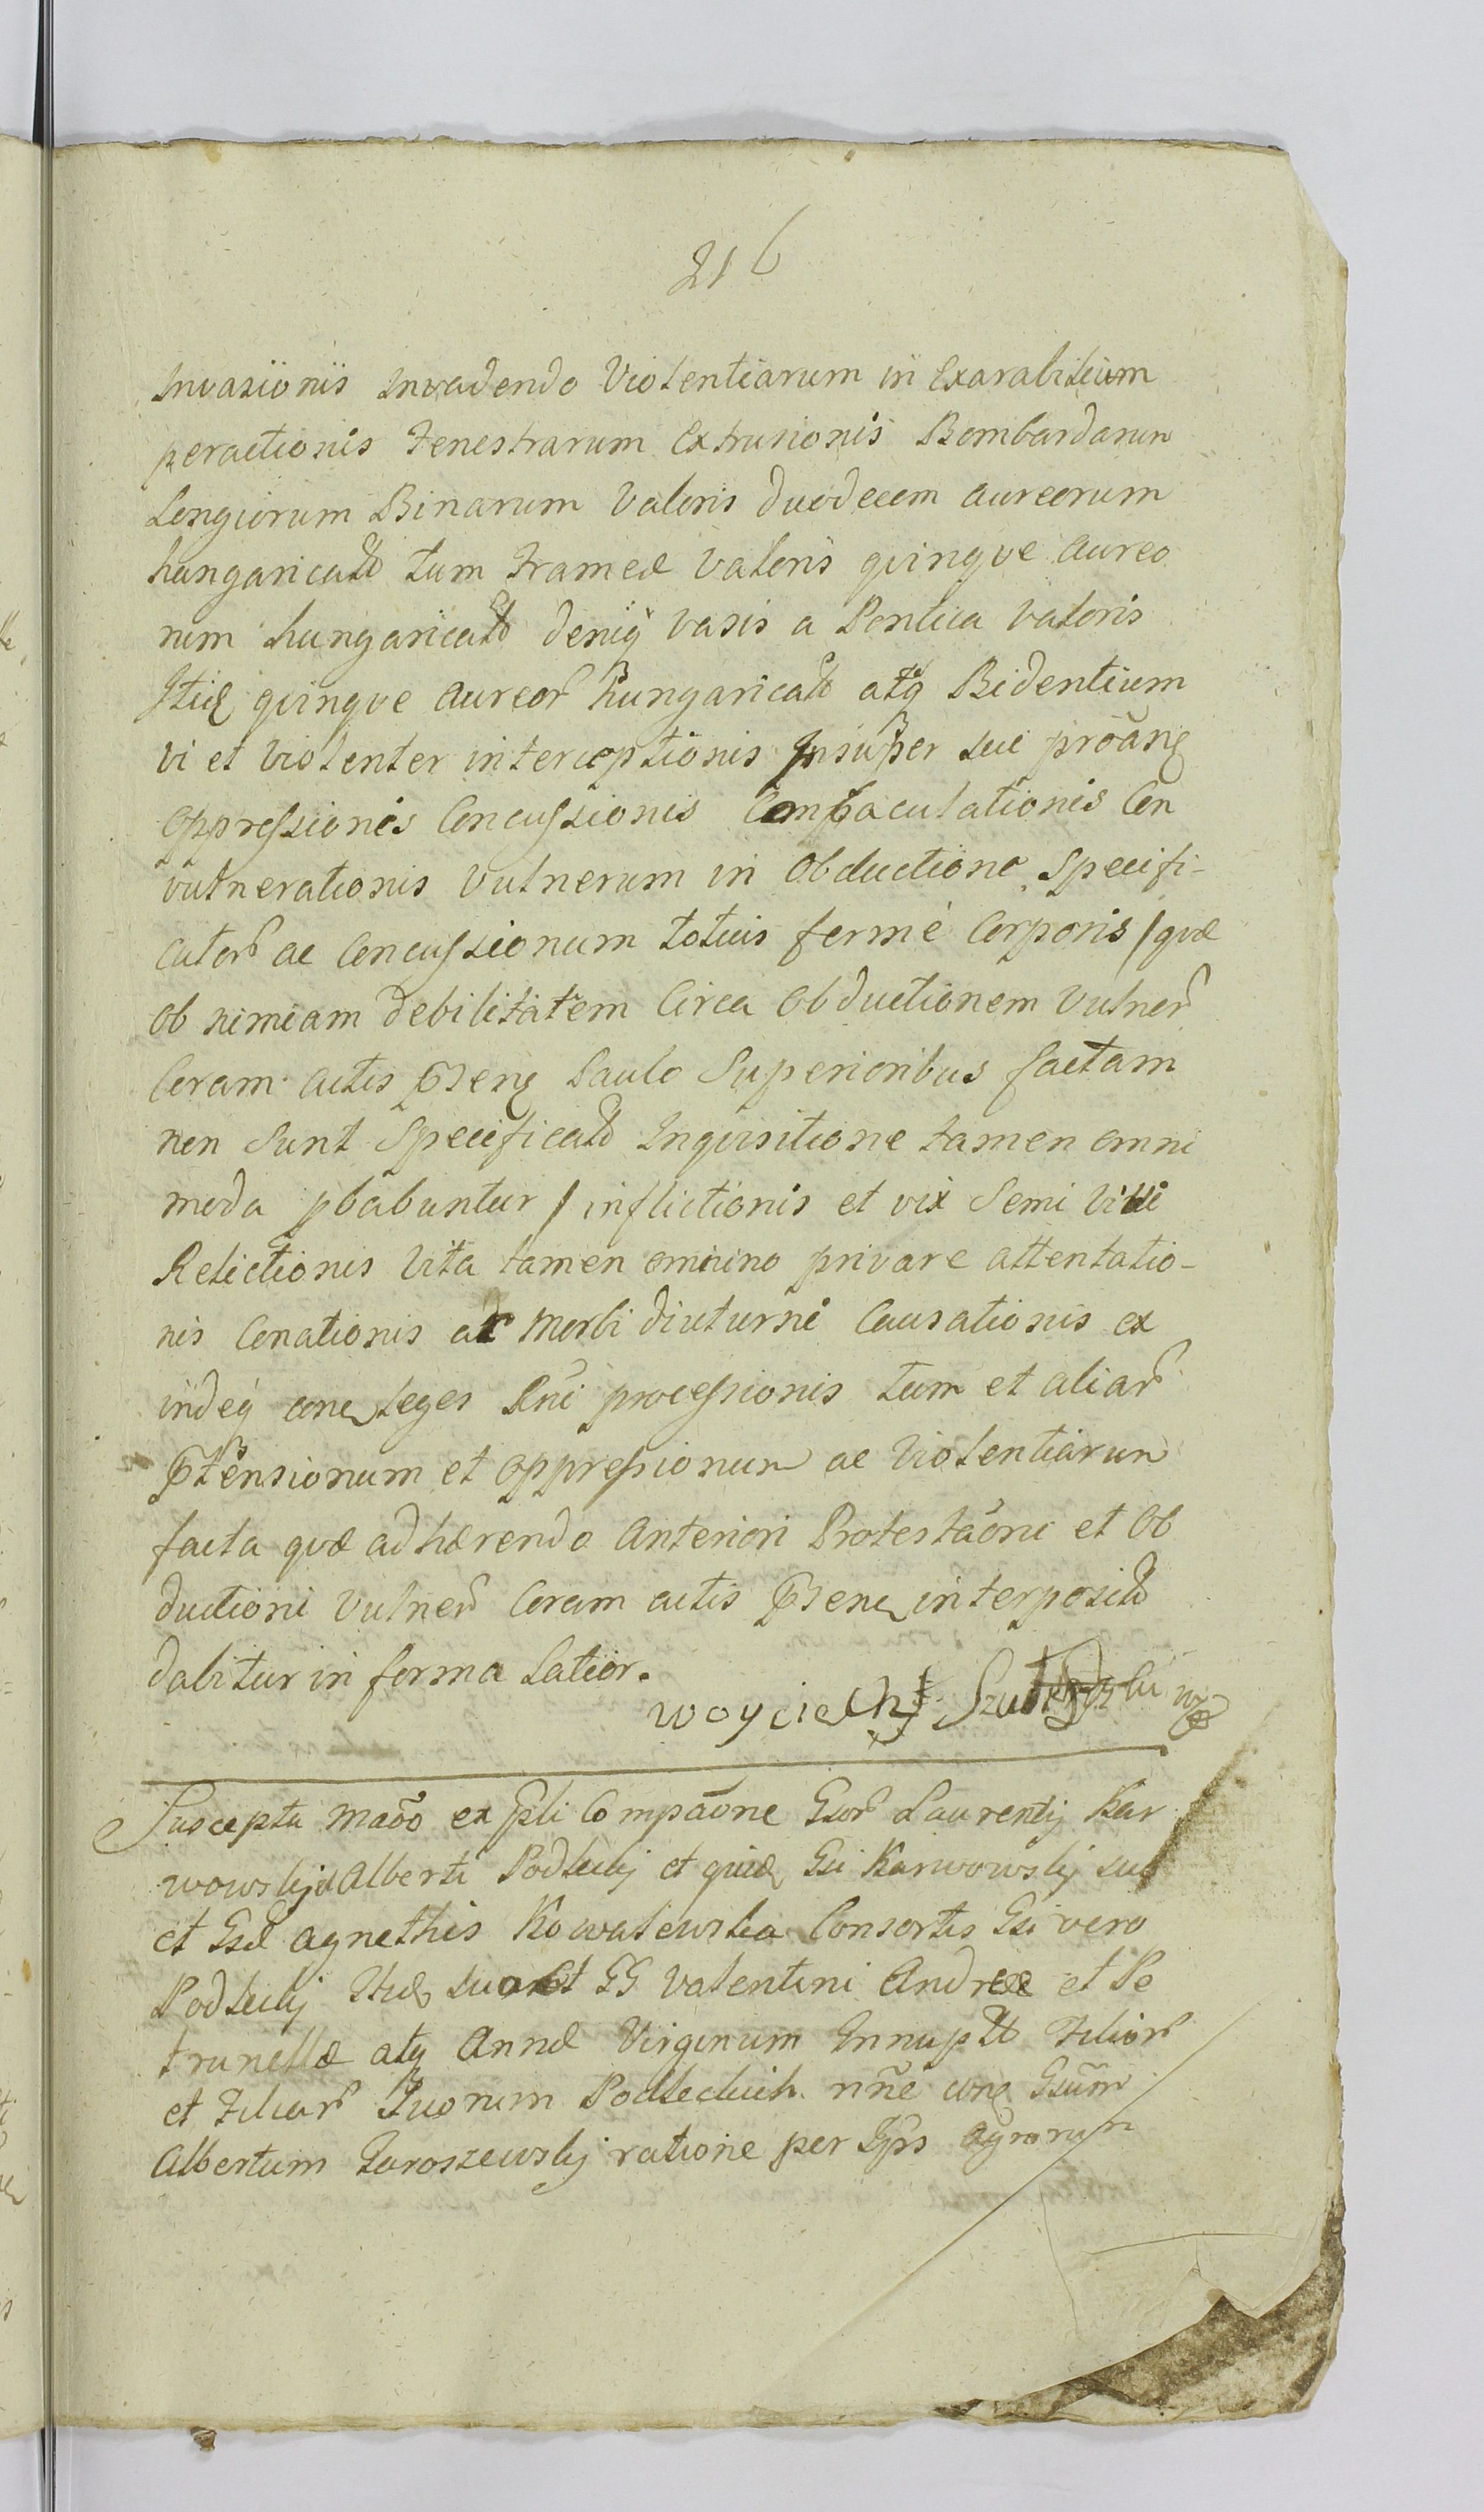 216
Invasiionis Invadendo Violentiarum in Exarabitium
peractionis Fenestrarum Extrusionis Bombardarum
Longiorum Binarum Valoris duodecem aureorum
hungaricalo tum Frameæ Valoris qvinqve aureo
rum hungarical deniq vasis a Pontica valoris
Itid qvinqve aureor hungarical atq Bidentium
vi et violenter interceptionis Insuper sui
oppressionis Concussionis Con
vulnerationis vulnerum in Obductione Specifi-
cator ac Concussionum totius fermè Corporis / qvæ
ob nimiam debilitatem Circa Obductionem Vulner
Coram actis Paulo Superioribus factam
non Sunt Specifical Inqvisitione tamen omni
moda pbabuntur / inflictionis et vix Semi Vivi
Relictionis Vita tamen omnino privare attentatio-
nis Conationis ac Morbi diuturni Causationis ex
indeq leges Rni processionis tum et aliar
et oppressionum ac Violentiarum
facta qvæ adhærendo Anteriori Protestaõni et Ob
ductioni Vulner Coram actis interposit
dabitur in forma Latior.
Woyciech
Suscepta ex Compaõne Gsor Laurentij Kar
wowskij et Alberti Podleckij et Gsi Karwowskij suo
et Gsæ Agnethis Kowalewska Consortis Gsi vero
Podleckij suo et GG Valentini Andreæ et Pe
trunellæ atq Annæ Virginum Innupt Filior
et Filiar Suorum nñe Gsũm
Albertum Jaroszewskij ratione per agrorum